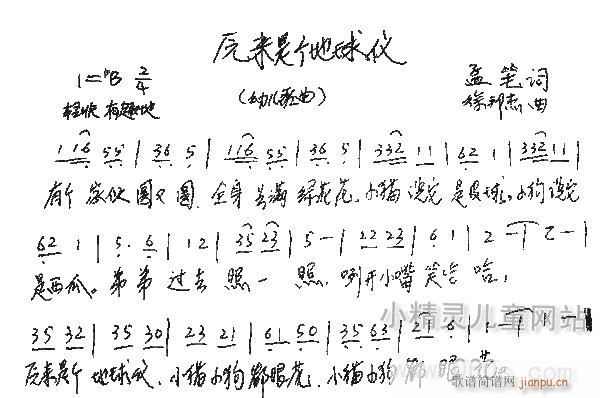 原来是个地球仪
1=♭B 2/4
孟笔词
(幼儿歌曲)
徐邦杰曲
轻快 有趣地
116 55 | 36 5 | 116 55 | 36 5 | 332 11 | 62 1 | 332 11 |
有个家伙圆又圆,全身长满绿花花,小猫说它是皮球,小狗说它
62 1 | 5. 6 | 12 | 35 23 | 5 - | 22 23 | 6 1 | 2 - | 2 - |
是西瓜。弟弟过去照一照,咧开小嘴笑哈哈:
35 32 | 35 30 | 23 21 | 61 50 | 35 63 | 21 6 | 1 - | 1 - |
原来是个地球仪,小猫小狗都眼花,小猫小狗都眼花。
小精灵儿童网站
歌谱简谱网
jianpu.cn